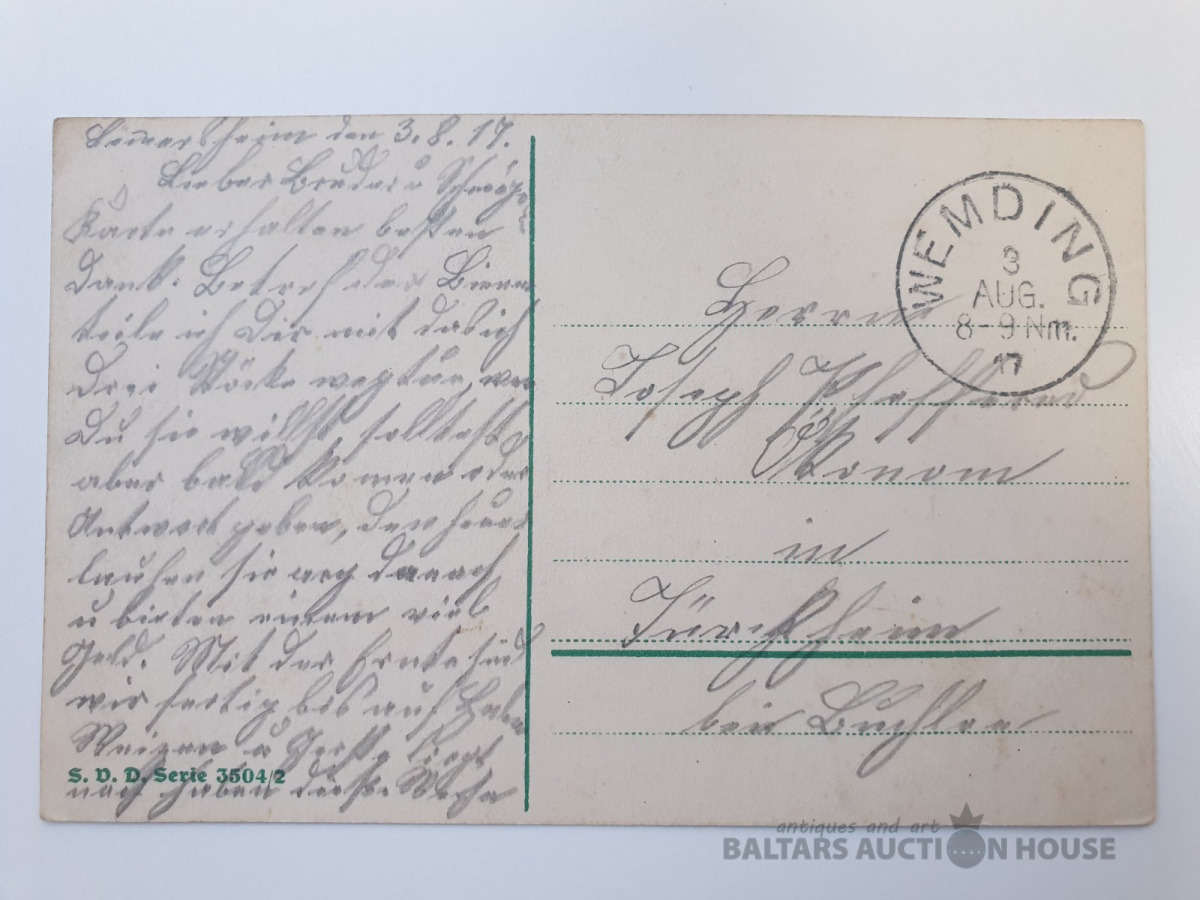 den 3.8.17.
Lieber Bruder u Schwäg.
Karte erhalten besten
Dank. Betreff der Bienen
teile ich Dir mit das ich
drei Stöcke wegtue, wen
Du sie willst, solltest
aber bald komen oder
Antwort geben, den heuer
laufen sie arg danach
u bieten einem viel
Geld. Mit der Ernte sind
wir fertig bis auf Haber
Weizen u Gerste liegt
noch haben diese Woche
S. V. D. Serie 3504/2
WEMDING
3
AUG.
8-9 Nm.
17
Herrn
Joseph
Ökonom
in
Türckheim
bei Buchloe
antiques and art
BALTARS AUCTION HOUSE